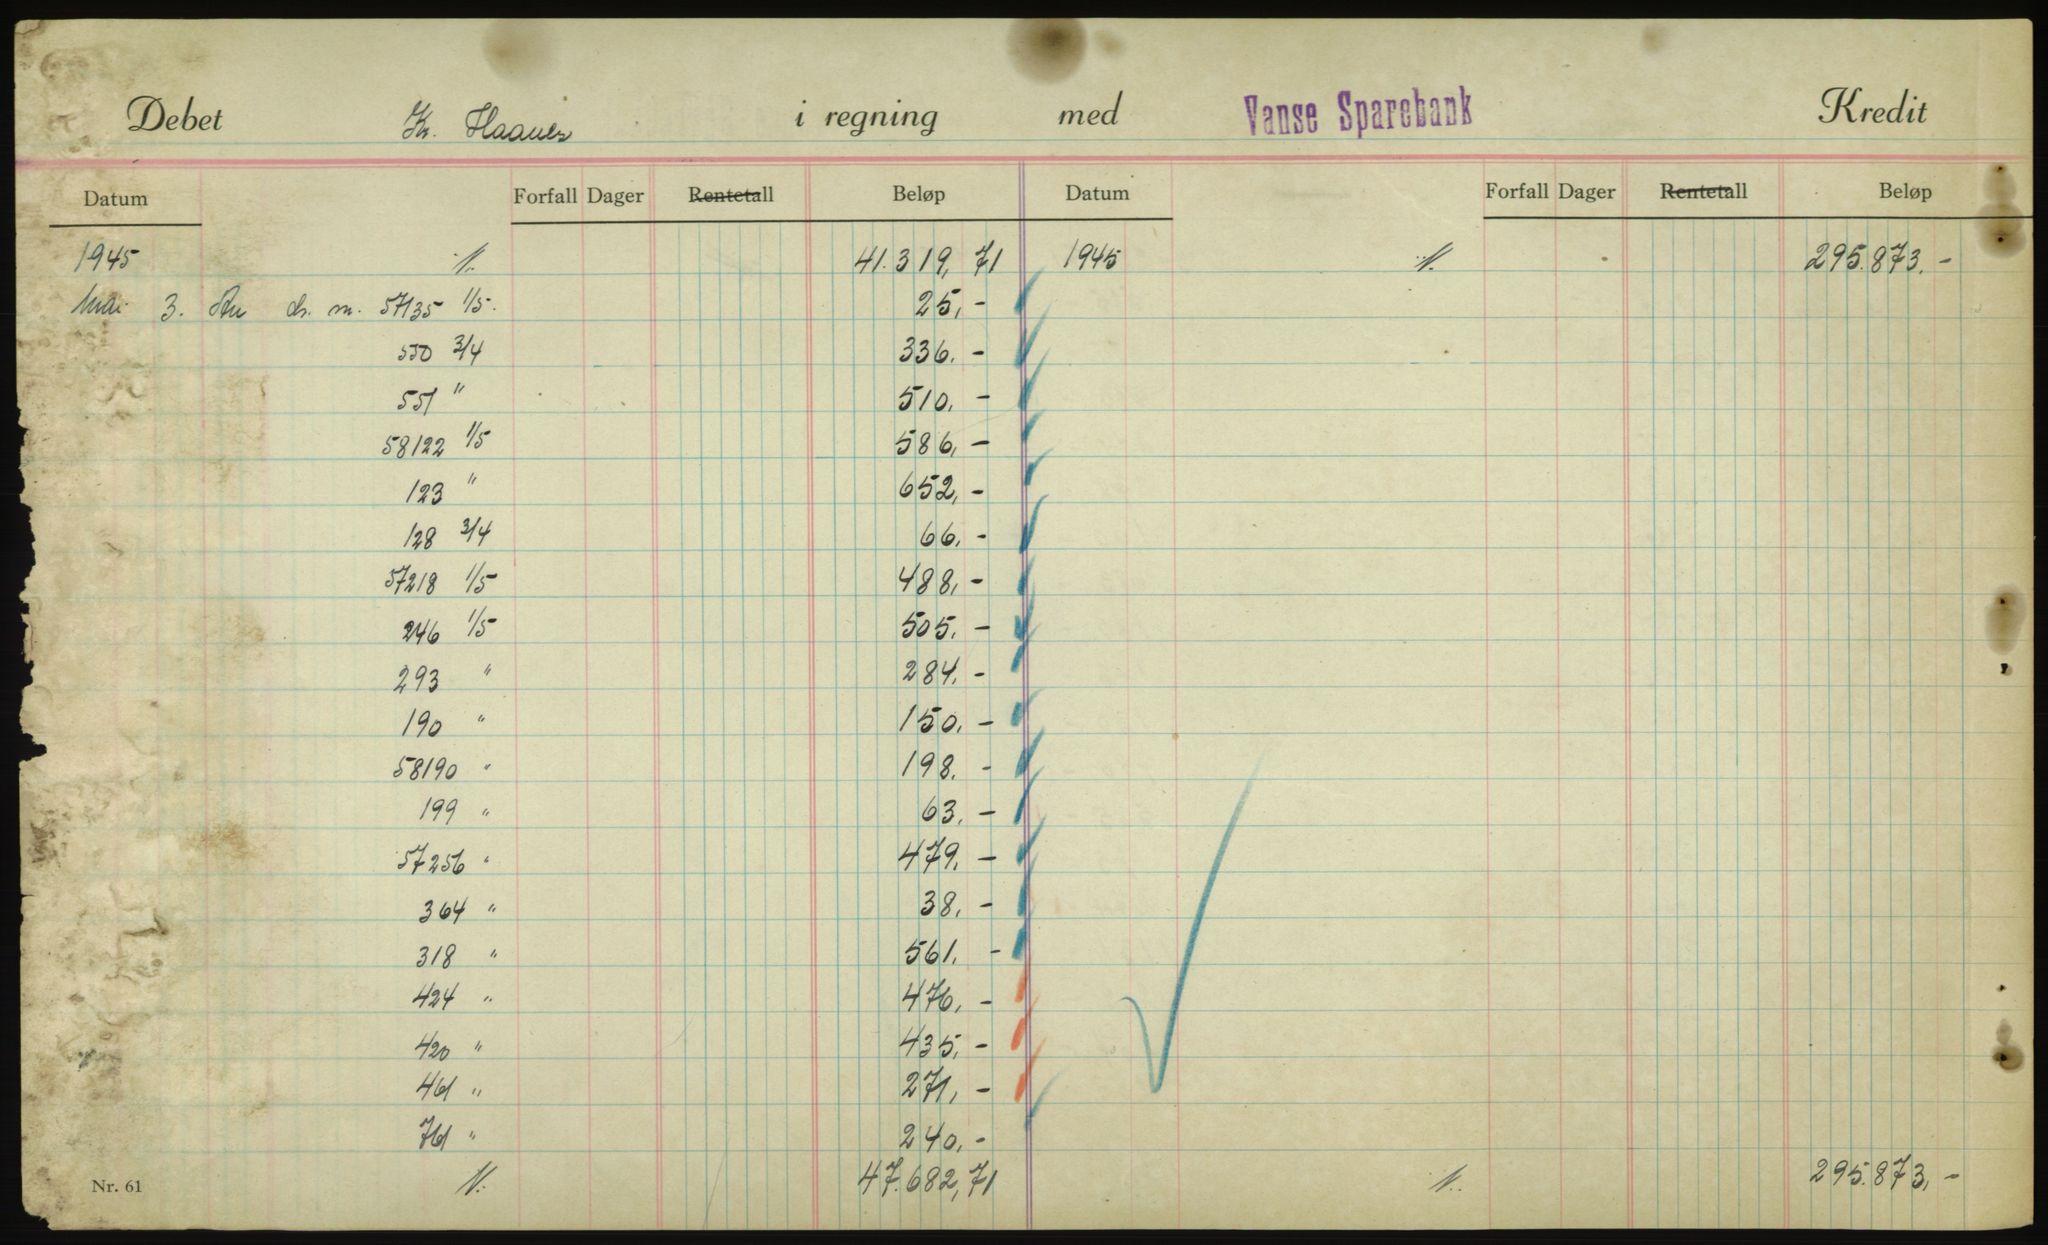 Debet Kr. Haanes i regning med Vanse Sparebank Kredit
Datum Forfall Dager Rentetall Beløp Datum Forfall Dager Rentetall Beløp
1945 41.319,71 1945 295.873.-
Mai 3. An ch. m. 57135 1/5. 25,-
550 3/4 336.-
551 " 510.-
58122 1/5 586,-
123 " 652,-
128 3/4 66.-
57218 1/5 488,-
246 1/5 505.-
293 " 284.-
190 " 150.-
58190 " 198.-
199 " 63.-
57256 " 479.-
364 " 38.-
318 " 561.-
424 " 476,-
420 " 435,-
461 " 271,-
761 " 240,-
Nr. 61 47.682,71 295.873,-